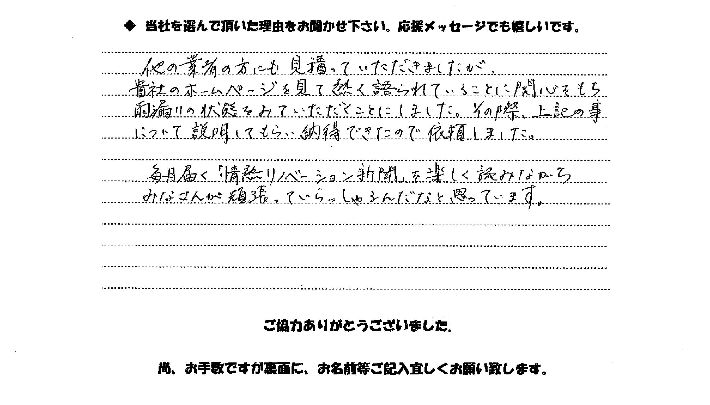 ◆ 当社を選んで頂いた理由をお聞かせ下さい。応援メッセージでも嬉しいです。
他の業者の方にも見積っていただきましたが、
貴社のホームページを見て熱く語られていることに関心をもち
雨漏りの状態をみていただくことにしました。その際、上記の事
について説明してもらい納得できたので依頼しました。
毎月届く「情熱リノベーション新聞」を楽しく読みながら
みなさんが頑張っていらっしゃるんだなと思っています。
ご協力ありがとうございました。
尚、お手数ですが裏面に、お名前等ご記入宜しくお願い致します。